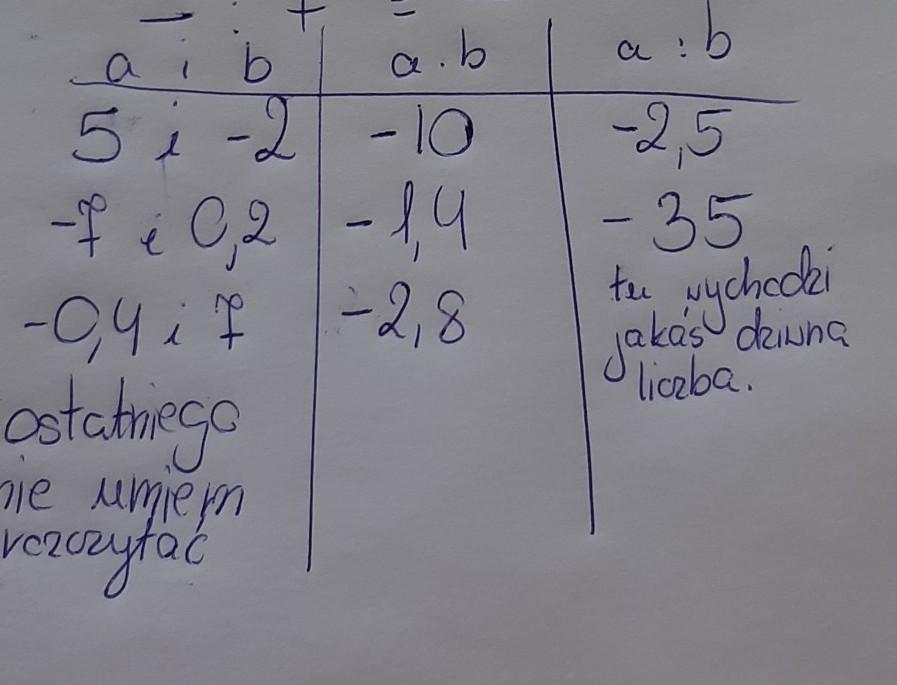 - : + =
a i b a · b a : b
5 i -2 -10 -2,5
-7 i 0,2 -1,4 -35
-0,4 i 7 -2,8 tu wychodzi
jakaś dziwna
liczba.
ostatniego
nie umiem
rozczytać